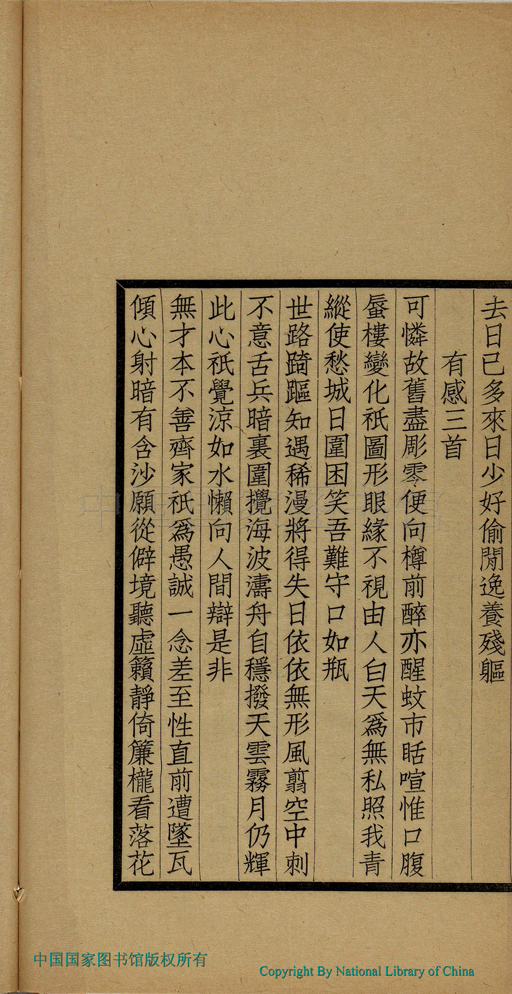 去日已多來日少好偷閒逸養殘軀
有感三首
可憐故舊盡彫零便向樽前醉亦醒蚊市聒喧惟口腹
蜃樓變化祇圖形眼緣不視由人白天為無私照我青
縱使愁城日圍困笑吾難守口如瓶
世路踦䟣知遇稀漫將得失日依依無形風翦空中刺
不意舌兵暗裏圍攪海波濤舟自穩撥天雲霧月仍輝
此心祇覺涼如水懶向人間辯是非
無才本不善齊家祇為愚誠一念差至性直前遭墜瓦
傾心射暗有含沙願從僻境聽虛籟靜倚簾櫳看落花
中国国家图书馆版权所有
Copyright By National Library of China